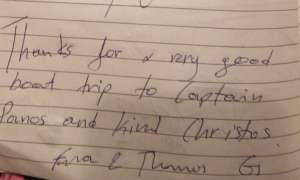 Thanks for a very good
boat trip to Captain
Panos and kind Christos.
&